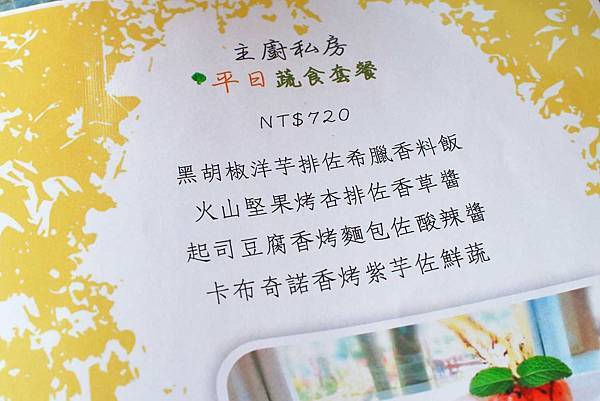 主廚私房
平日蔬食套餐
NT$720
黑胡椒洋芋排佐希臘香料飯
火山堅果烤杏排佐香草醬
起司豆腐香烤麵包佐酸辣醬
卡布奇諾香烤紫芋佐鮮蔬